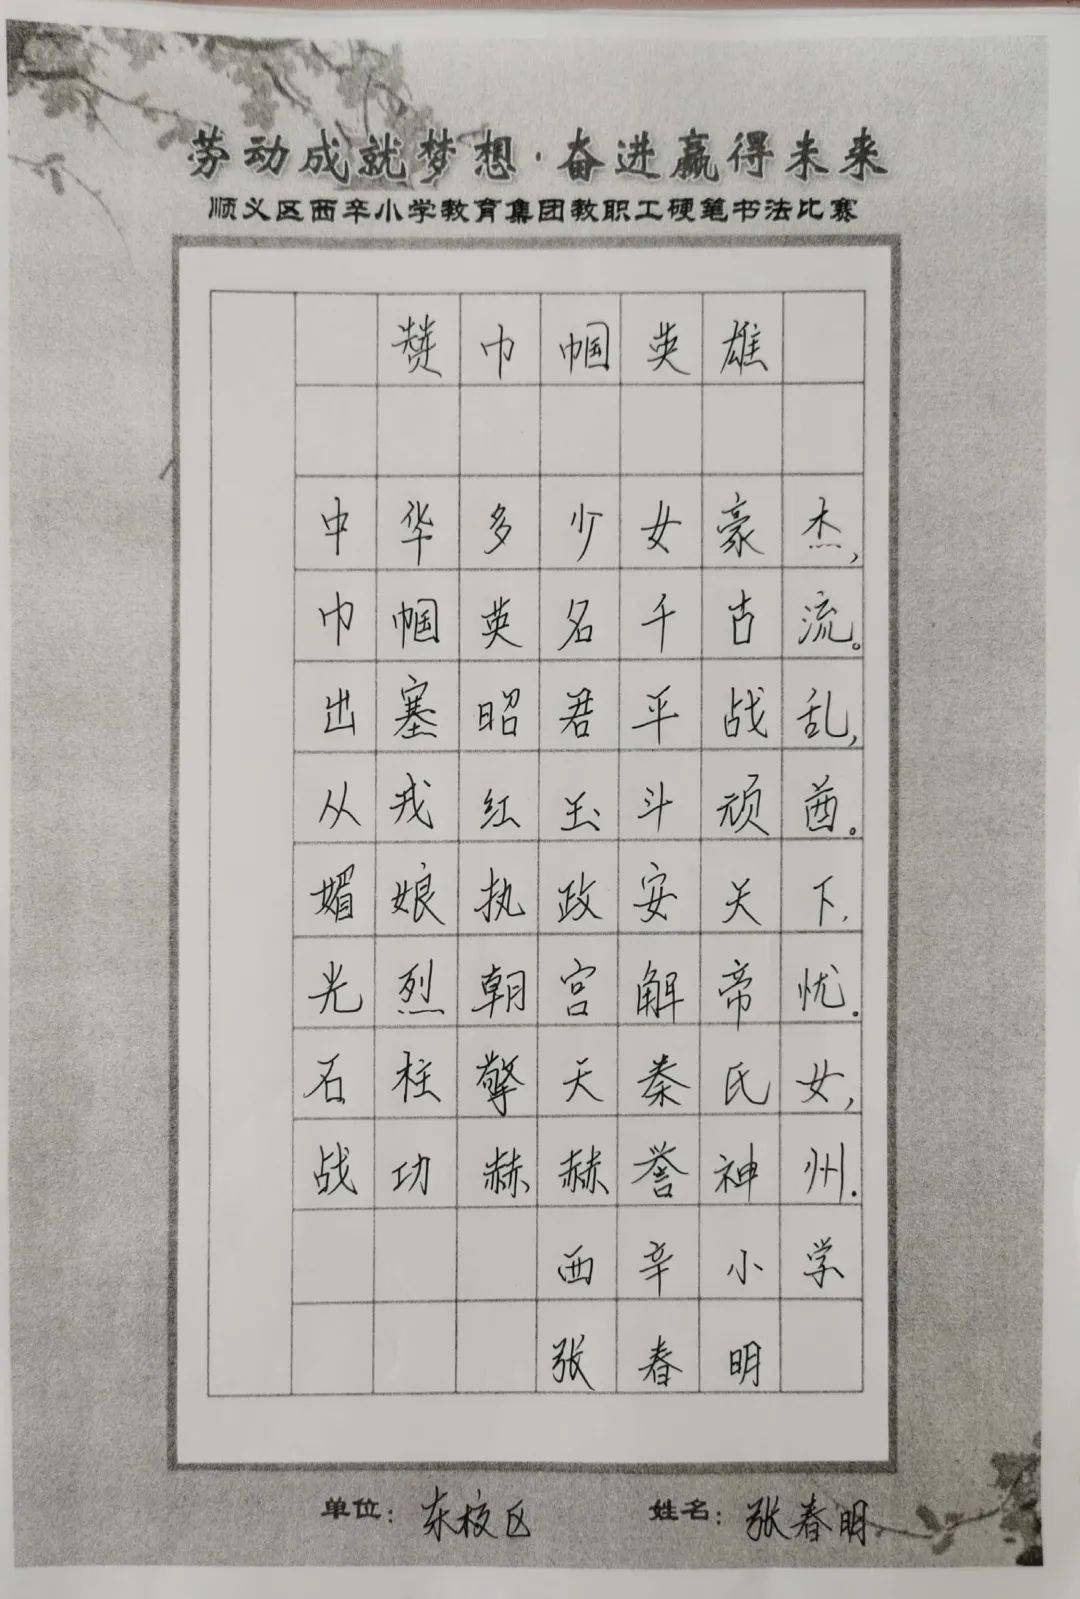 劳动成就梦想·奋进赢得未来
顺义区西辛小学教育集团教职工硬笔书法比赛
赞巾帼英雄
中华多少女豪杰，
巾帼英名千古流。
出塞昭君平战乱，
从戎红玉斗顽酋。
媚娘执政安天下，
光烈朝宫解帝忧.
石柱擎天秦氏女，
战功赫赫誉神州.
西辛小学
张春明
单位：东校区 姓名：张春明